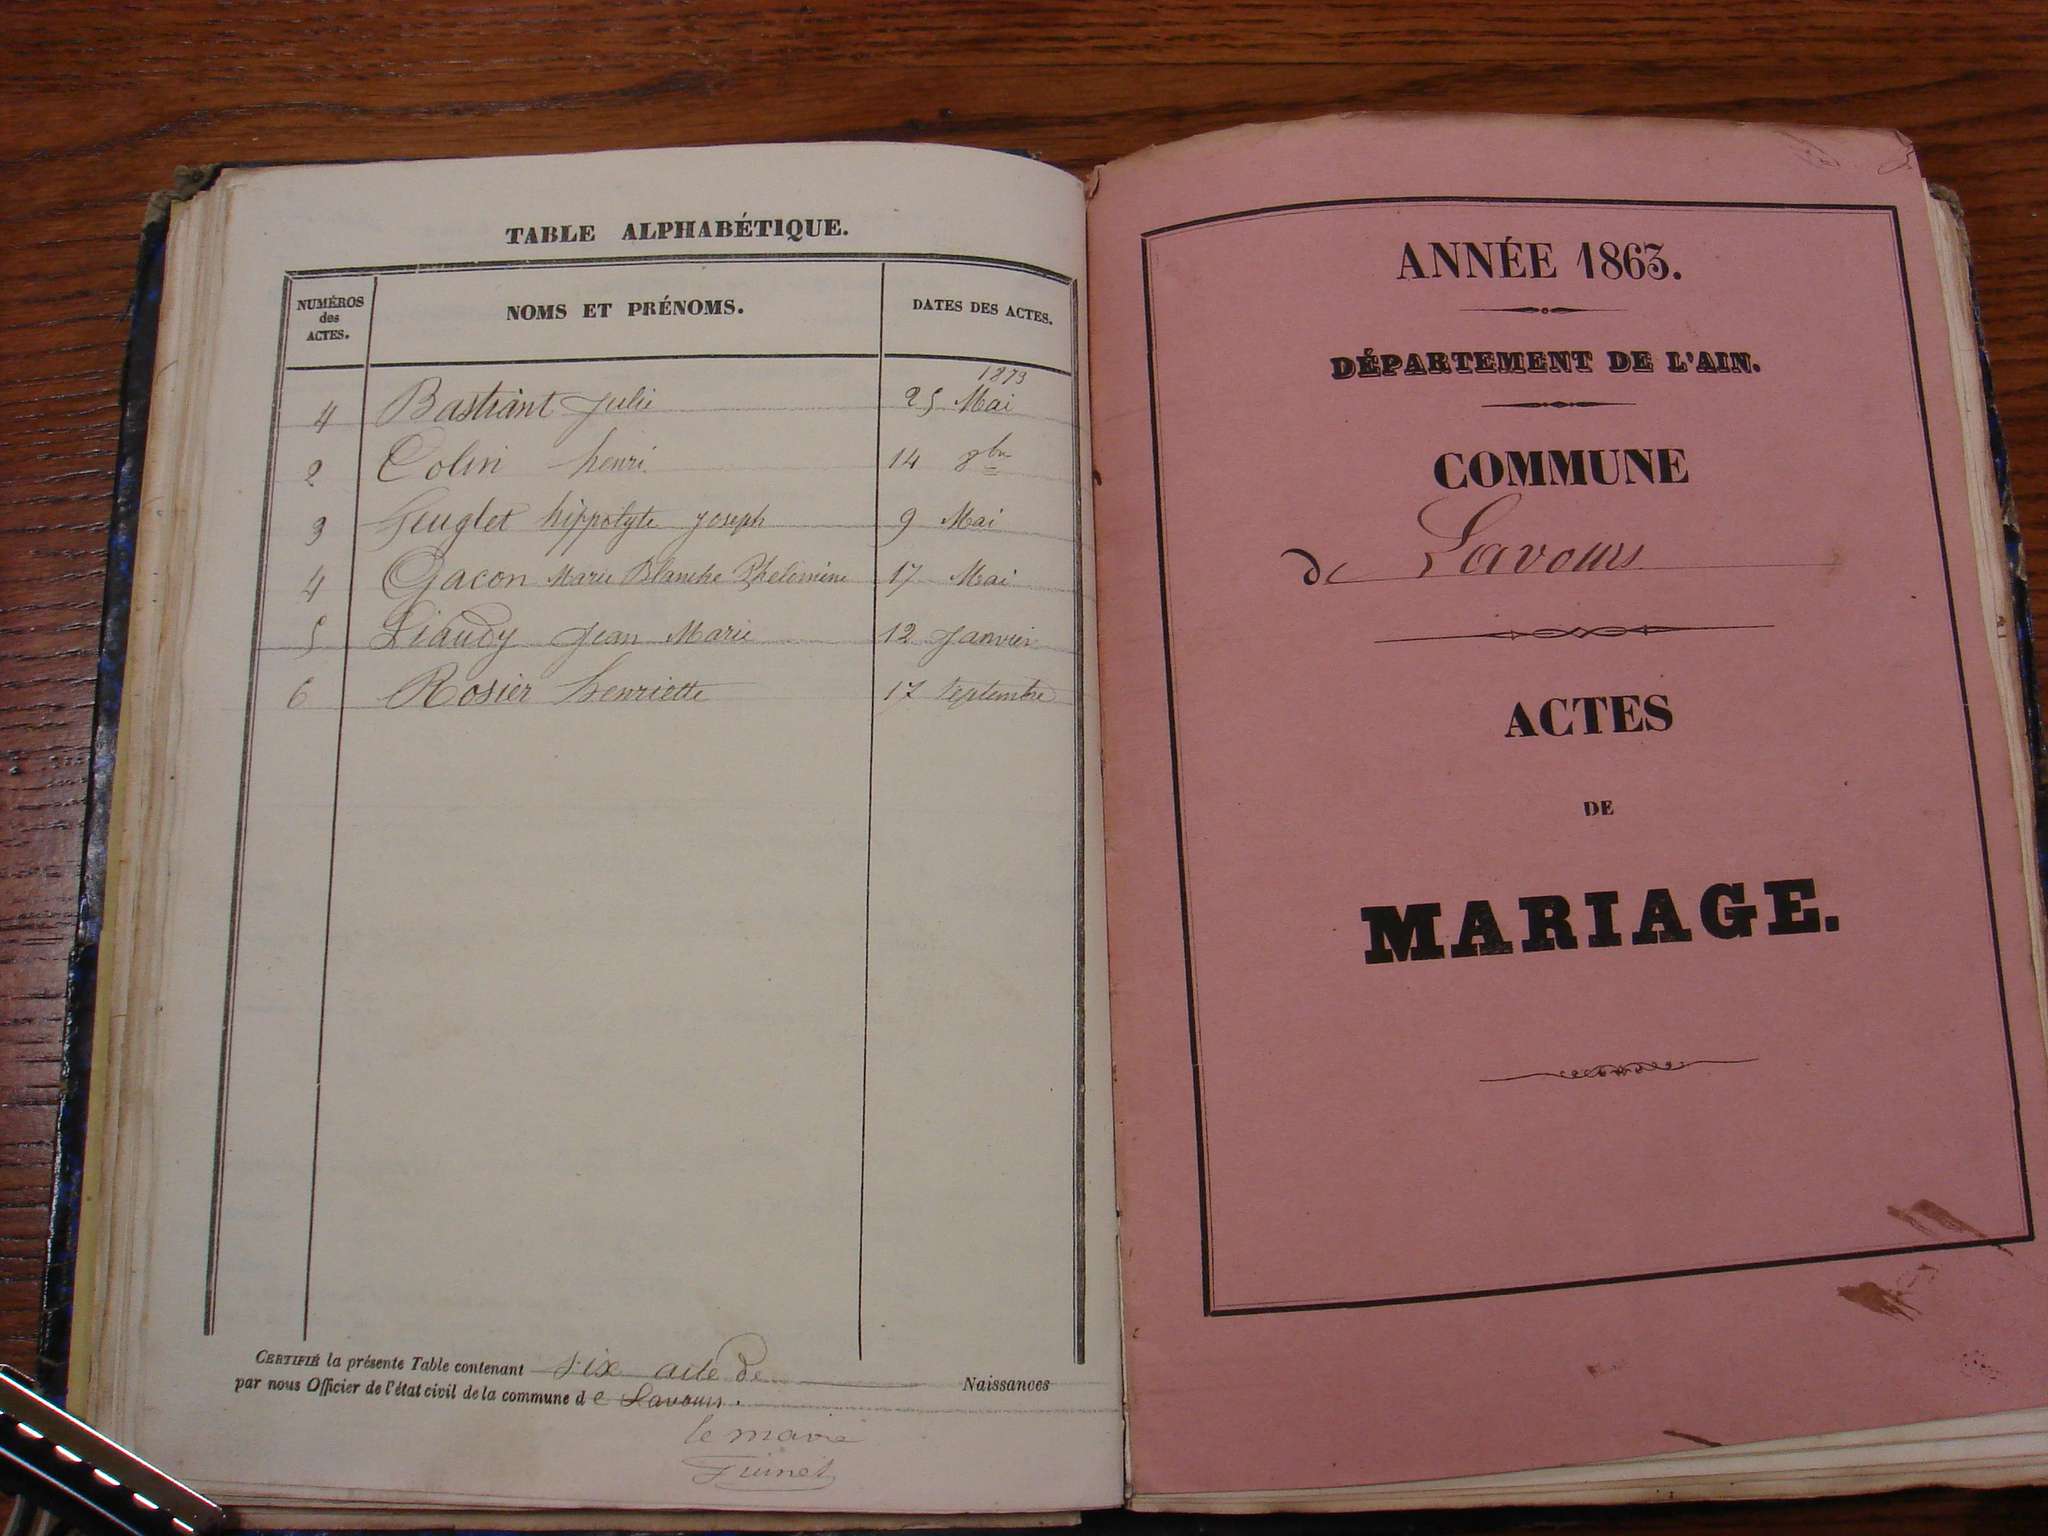 TABLE ALPHABÉTIQUE.
NUMÉROS des ACTES.
NOMS ET PRÉNOMS.
DATES DES ACTES.
1873
4 Bastiant Julie 25 Mai
2 Colin henri 14 8bre
3 hippolyte Joseph 9 Mai
4 Gacon Marie Blanche Phelomène 17 Mai
5 Liaudy Jean Marie 12 Janvier
6 Rosier henriette 17 Septembre
CERTIFIÉ la présente Table contenant six acte de Naissances
par nous Officier de l'état civil de la commune de Lavours.
le maire
ANNÉE 1863.
DÉPARTEMENT DE L'AIN.
COMMUNE
de Lavours
ACTES
DE
MARIAGE.